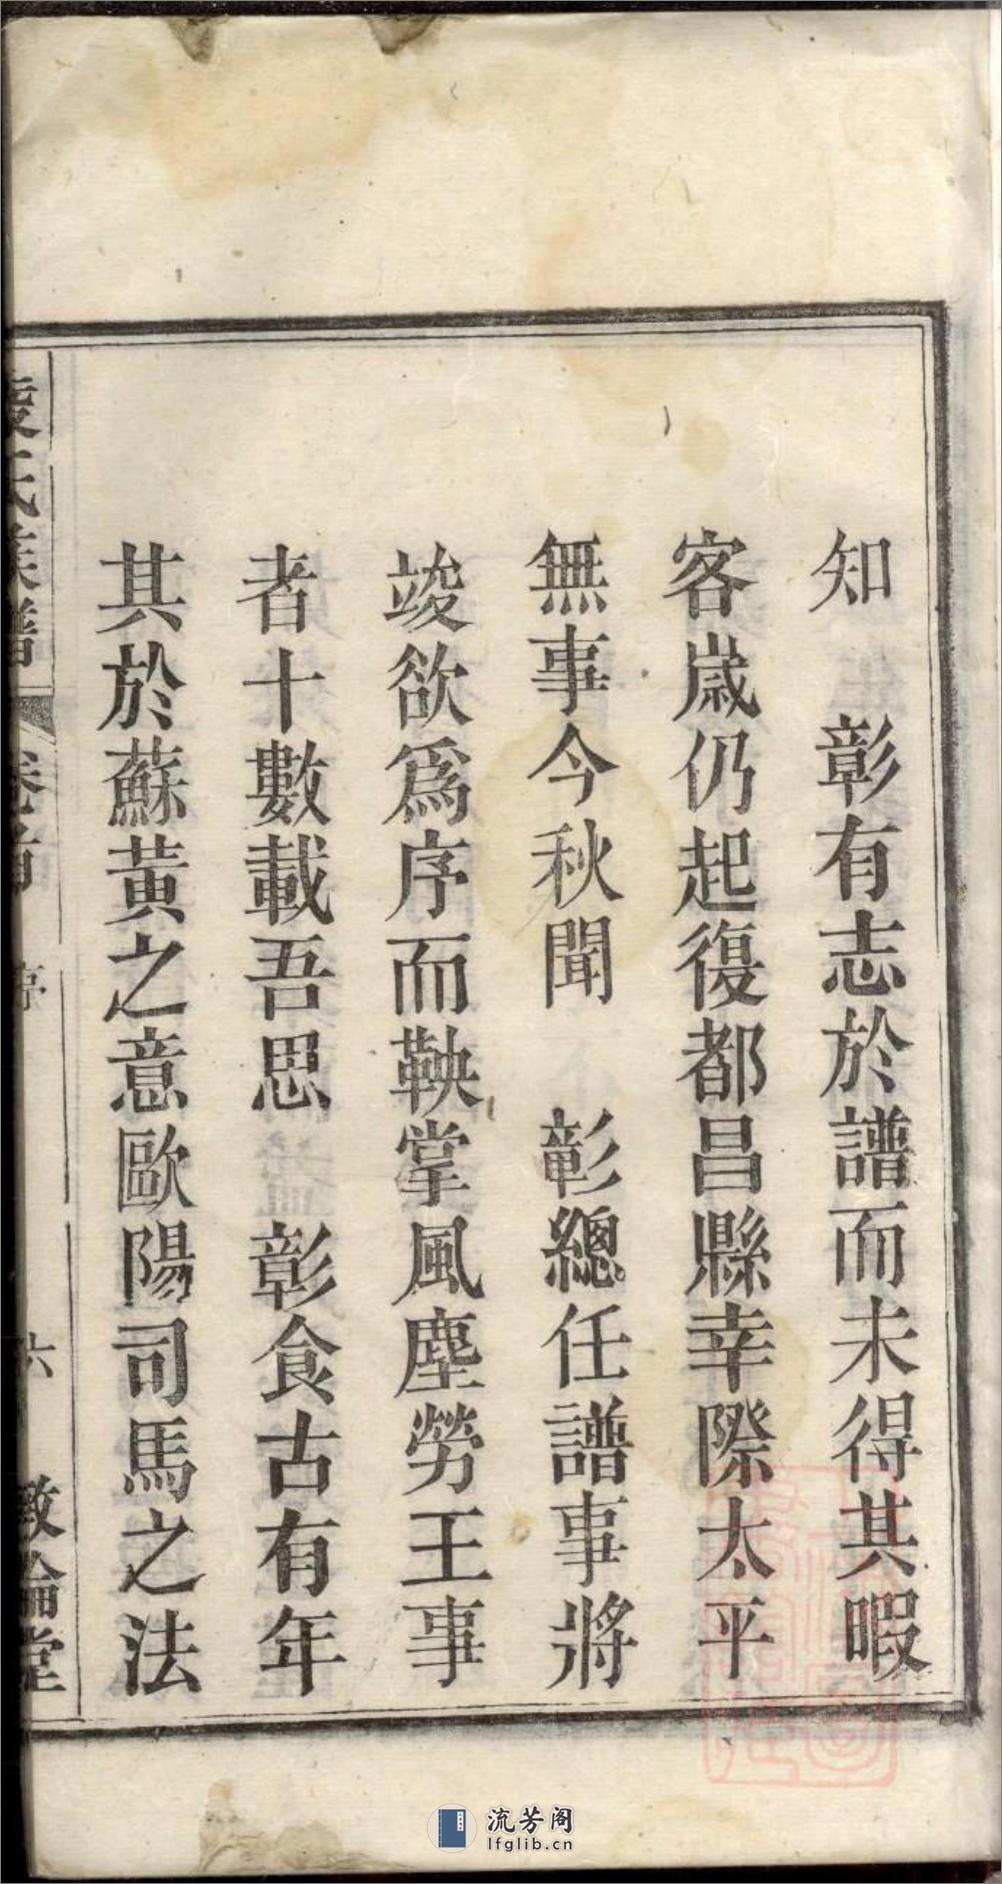 知　彰有志於譜而未得其暇
客嵗仍起復都昌縣幸際太平
無事今秋聞　彰總任譜事將
竣欲爲序而鞅掌風塵勞王事
者十數載吾思　彰食古有年
其於蘇黃之意歐陽司馬之法
氏族譜
卷首
六
敦倫堂
流芳阁
lfglib.cn